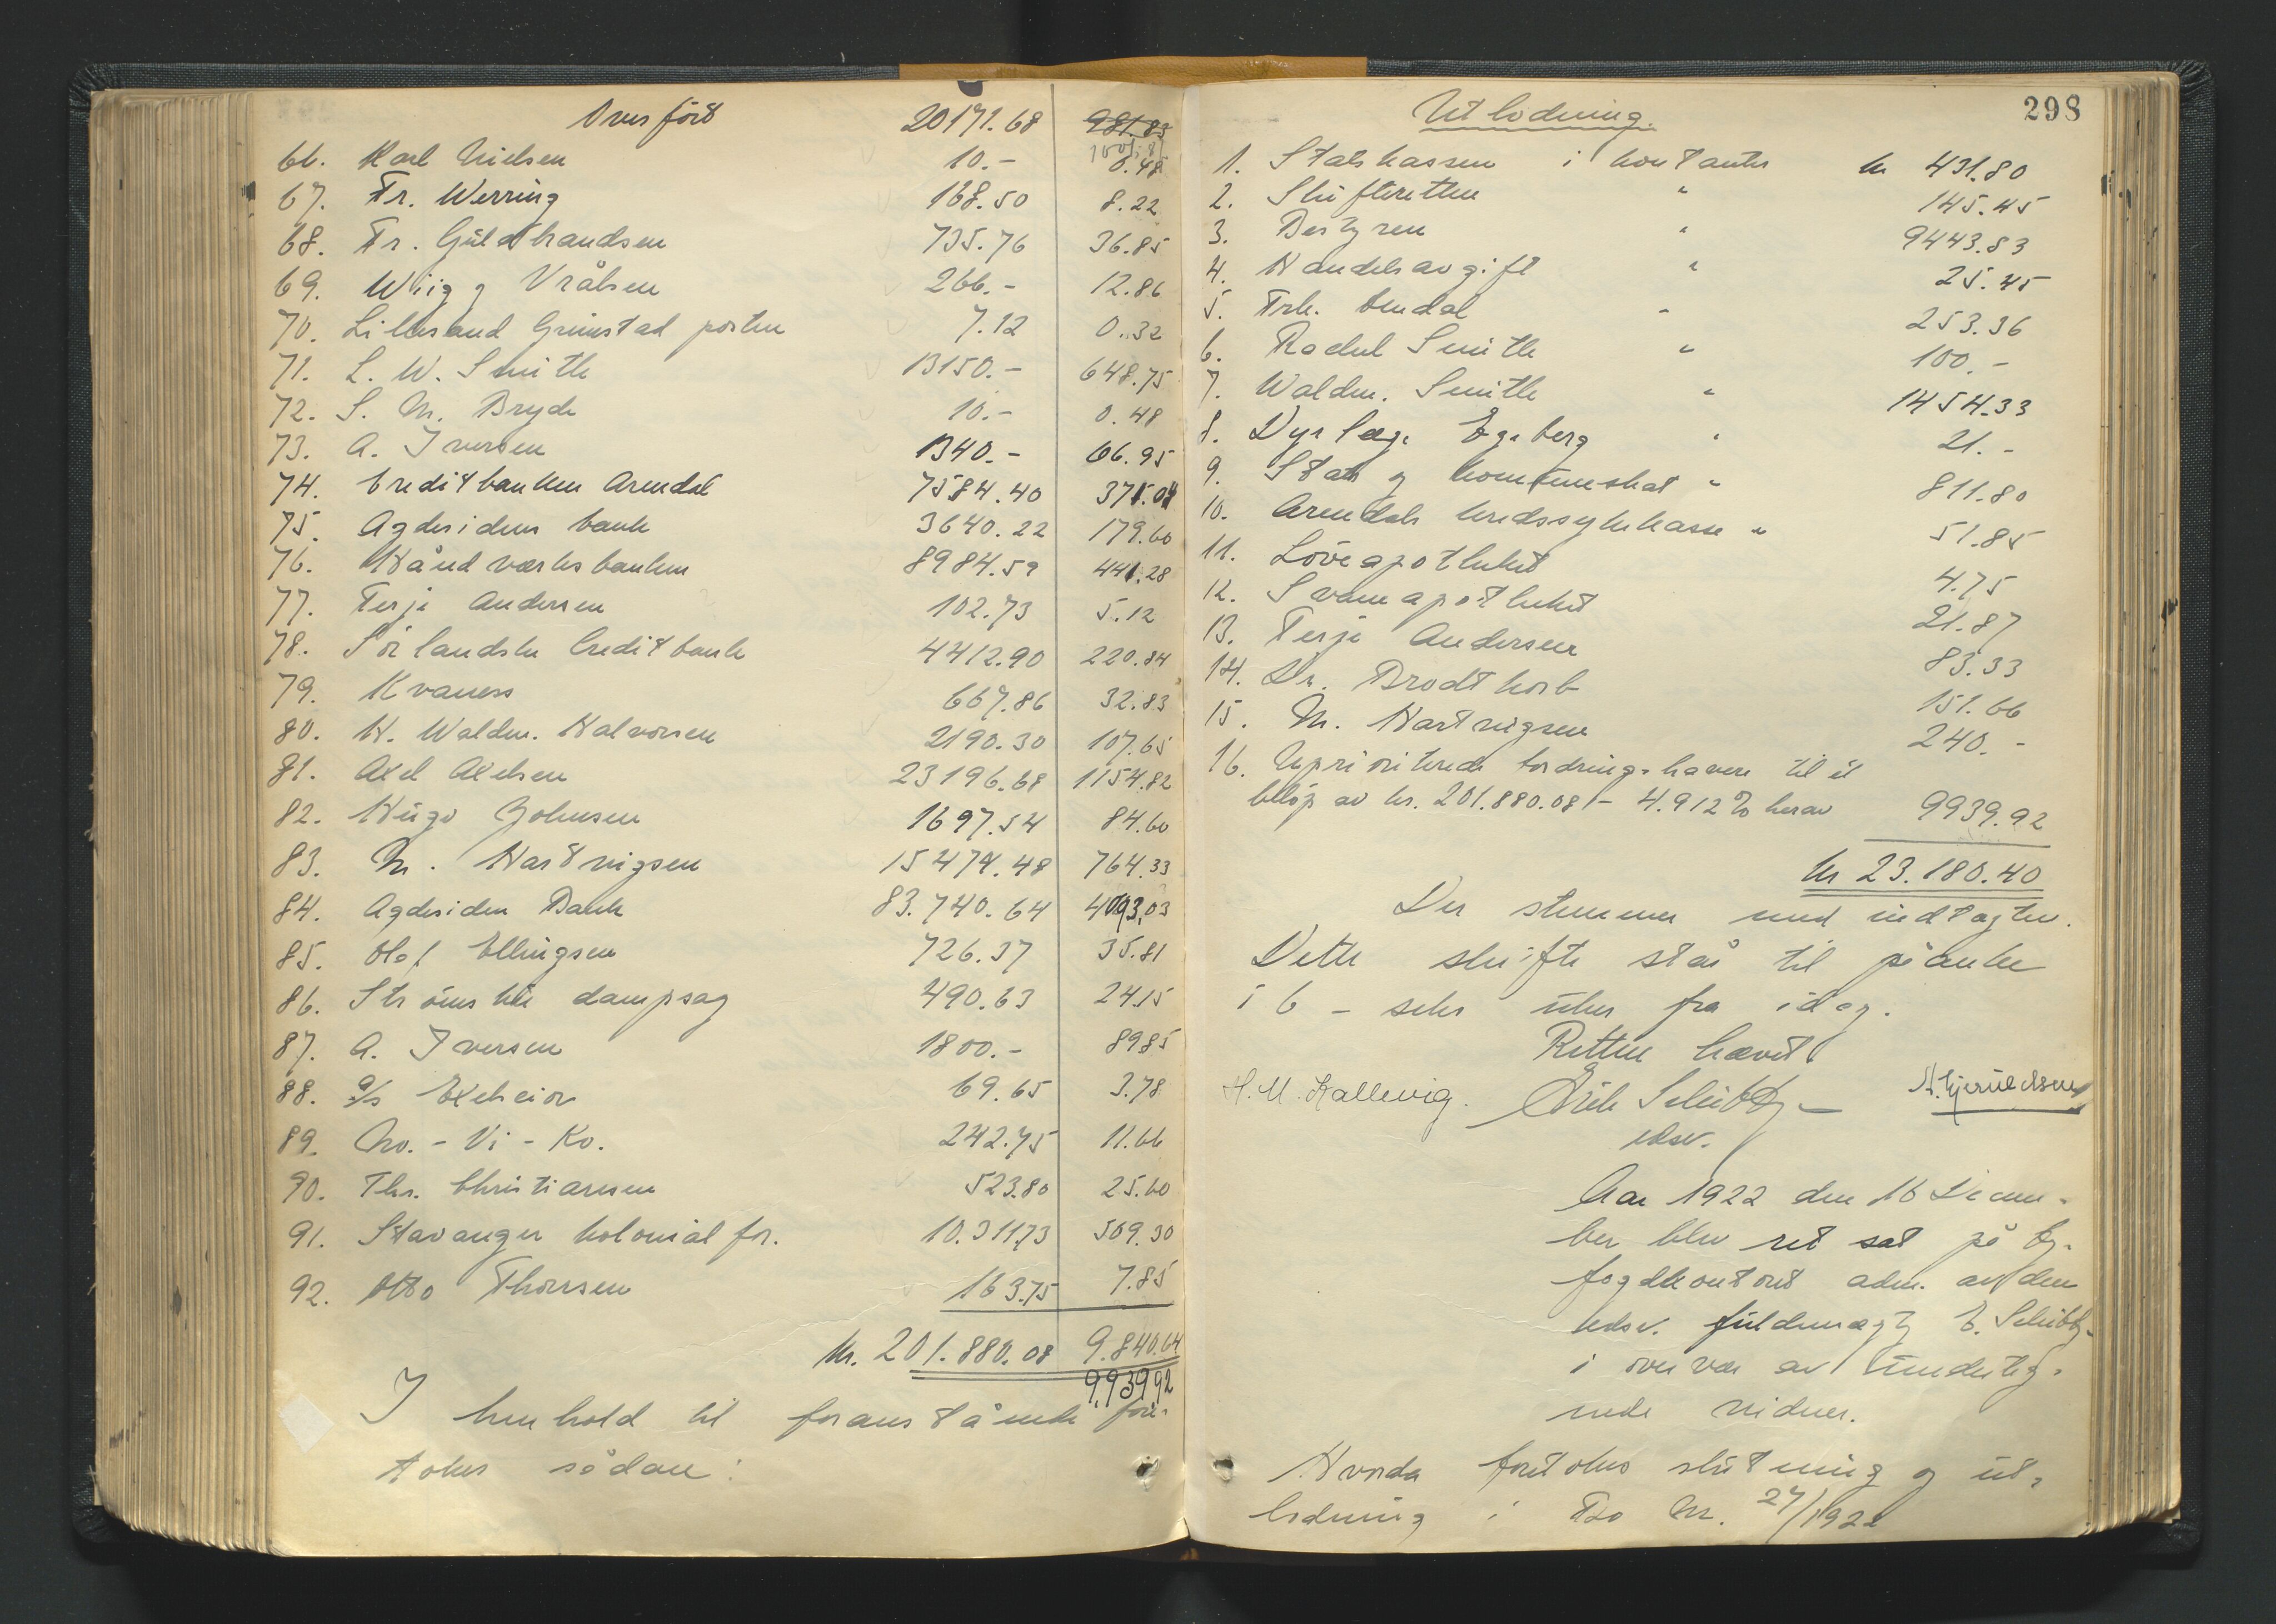 Overført 20171.68 981.83
66. Karl Nielsen 10.- 0.48
67. Fr. Werring 168.50 8.22
68. Fr. Guldbrandsen 735.76 36.85
69. Wiig g Vrålsen 266.- 12.86
70. Lillesand Grimstad posten 7.12 0.32
71. L. W. Smith 13150.- 648.75
72. S. M. Bryde 10.- 0.48
73. A. Iversen 1340.- 66.95
74. Creditbanken Arendal 7584.40 371.04
75. Agdesidens bank 3640.22 179.60
76. Håndværksbanken 8984.59 441.28
77. Terje Andersen 102.73 5.12
78. Sørlandske Creditbank 4412.90 220.84
79. Kvaness 667.86 32.83
80. H. Waldm. Halvorsen 2190.30 107.65
81. Axel Axelsen 23196.68 1154.82
82. Hugo Johnsen 1697.54 84.60
83. M. Hartvigsen 15474.48 764.33
84. Agdesiden Bank 83.740.64 4093.03
85. Olaf Ellingsen 726.37 35.81
86. Strømsbu dampsag 490.63 24.15
87. A. Iversen 1800.- 89.85
88. a/s Excelsior 69.65 3.78
89. No. - Vi - Ko. 242.75 11.66
90. Thr. Christiansen 523.80 25.60
91. Stavanger kolonial for. 10.311.73 509.30
92. Otto Thorsen 163.75 7.85
Kr. 201.880.08 9.840.64
9.939.92
I henhold til foranstående fore-
tokes sådan:
298
Utlodning.
1. Statskassen i kontanter kr 431.80
2. Skifteretten " 145.45
3. Bestyren " 9443.83
4. Handelsavgift " 25.45
5. Frk. Omdal " 253.36
6. Rachel Smith " 100.-
7. Waldm. Smith " 1454.33
8. Dyrlæge Egeberg " 21.-
9. Stats g kommuneskat " 811.80
10. Arendals kredssykekasse " 51.85
11. Løveapotheket 4.75
12. Svaneapotheket 21.87
13. Terje Andersen 83.33
14. Dr. Brodtkorb 151.66
15. M. Hartvigsen 240.-
16. Uprioriterede fordringshavere til et
beløp av kr. 201.880.08 - 4.912% herav 9939.92
Kr 23.180.40
Der stemmer med indtægten.
Dette skifte står til påanke
i 6 - seks uker fra idag.
Retten hævet
H. M. Kallevig. Erik Schibby
edsv.
Aar 1922 den 16 Decem-
ber blev ret sat på By-
fogdkontoret adm. av den
edsv. fuldmægtg E. Schibby
i overvær av undertg-
nede vidner.
Hvorda foretokes slutning g ut-
lodning i Bo Nr. 27/1922